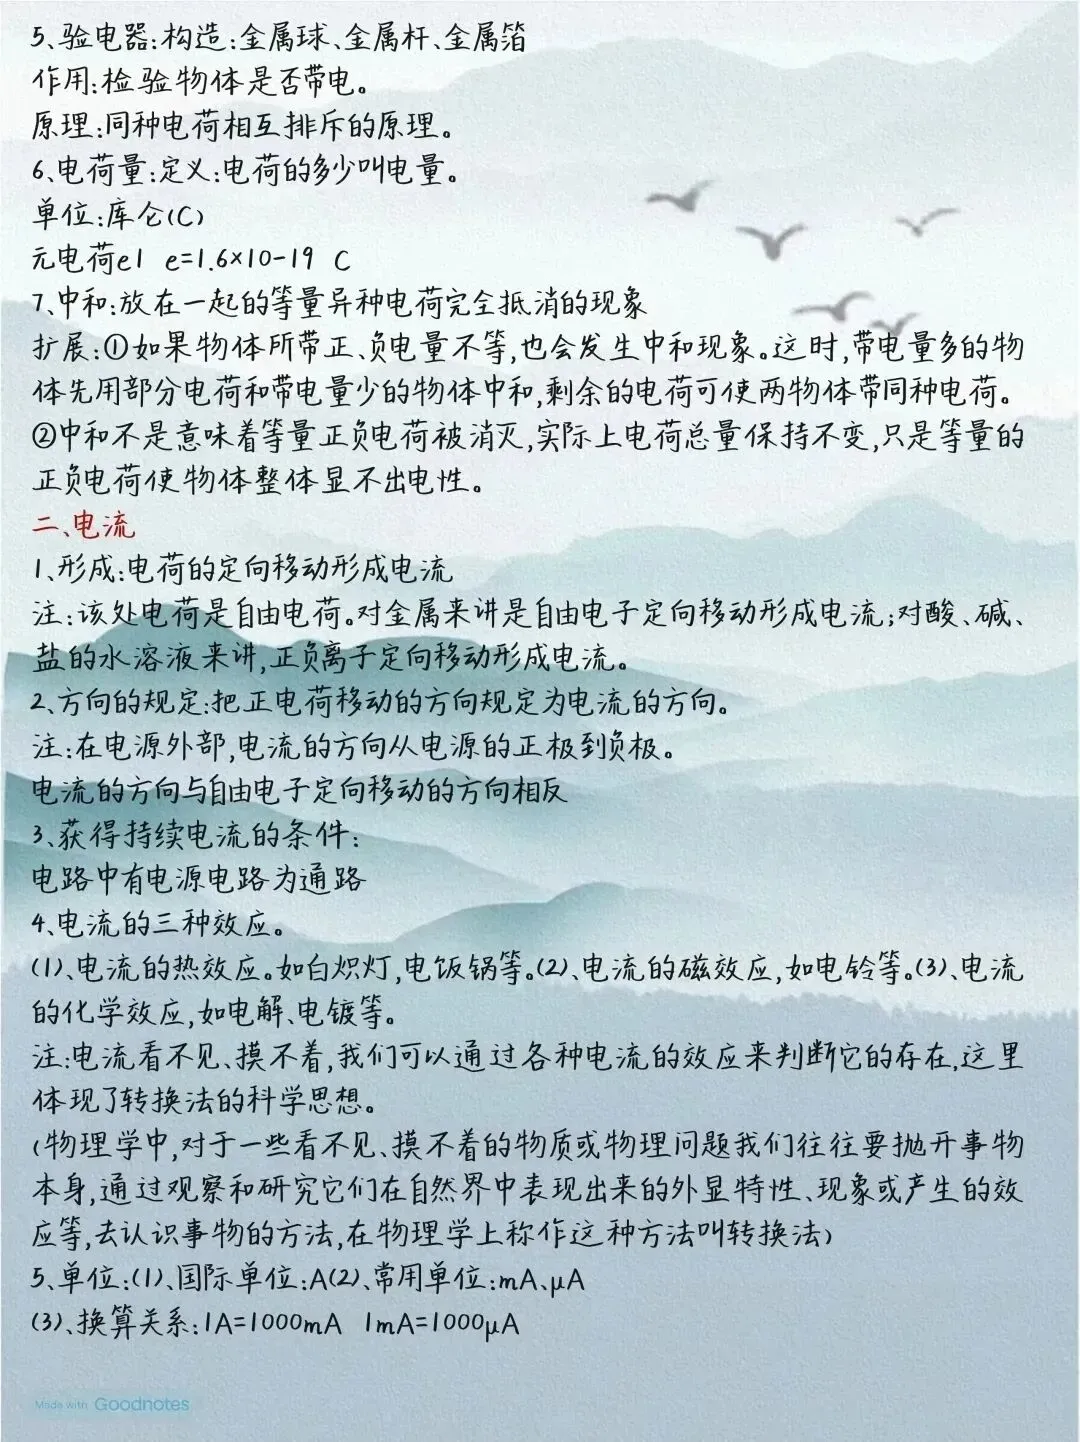 5、验电器:构造:金属球、金属杆、金属箔
作用:检验物体是否带电。
原理:同种电荷相互排斥的原理。
6、电荷量:定义:电荷的多少叫电量。
单位:库仑(C)
元电荷e1 e=1.6×10-19 C
7、中和:放在一起的等量异种电荷完全抵消的现象
扩展:①如果物体所带正、负电量不等,也会发生中和现象。这时,带电量多的物
体先用部分电荷和带电量少的物体中和,剩余的电荷可使两物体带同种电荷。
②中和不是意味着等量正负电荷被消灭,实际上电荷总量保持不变,只是等量的
正负电荷使物体整体显不出电性。
二、电流
1、形成:电荷的定向移动形成电流
注:该处电荷是自由电荷。对金属来讲是自由电子定向移动形成电流;对酸、碱、
盐的水溶液来讲,正负离子定向移动形成电流。
2、方向的规定:把正电荷移动的方向规定为电流的方向。
注:在电源外部,电流的方向从电源的正极到负极。
电流的方向与自由电子定向移动的方向相反
3、获得持续电流的条件:
电路中有电源电路为通路
4、电流的三种效应。
(1)、电流的热效应。如白炽灯,电饭锅等。(2)、电流的磁效应,如电铃等。(3)、电流
的化学效应,如电解、电镀等。
注:电流看不见、摸不着,我们可以通过各种电流的效应来判断它的存在,这里
体现了转换法的科学思想。
(物理学中,对于一些看不见、摸不着的物质或物理问题我们往往要抛开事物
本身,通过观察和研究它们在自然界中表现出来的外显特性、现象或产生的效
应等,去认识事物的方法,在物理学上称作这种方法叫转换法)
5、单位:(1)、国际单位:A(2)、常用单位:mA、μA
(3)、换算关系:1A=1000mA 1mA=1000μA
Made with Goodnotes